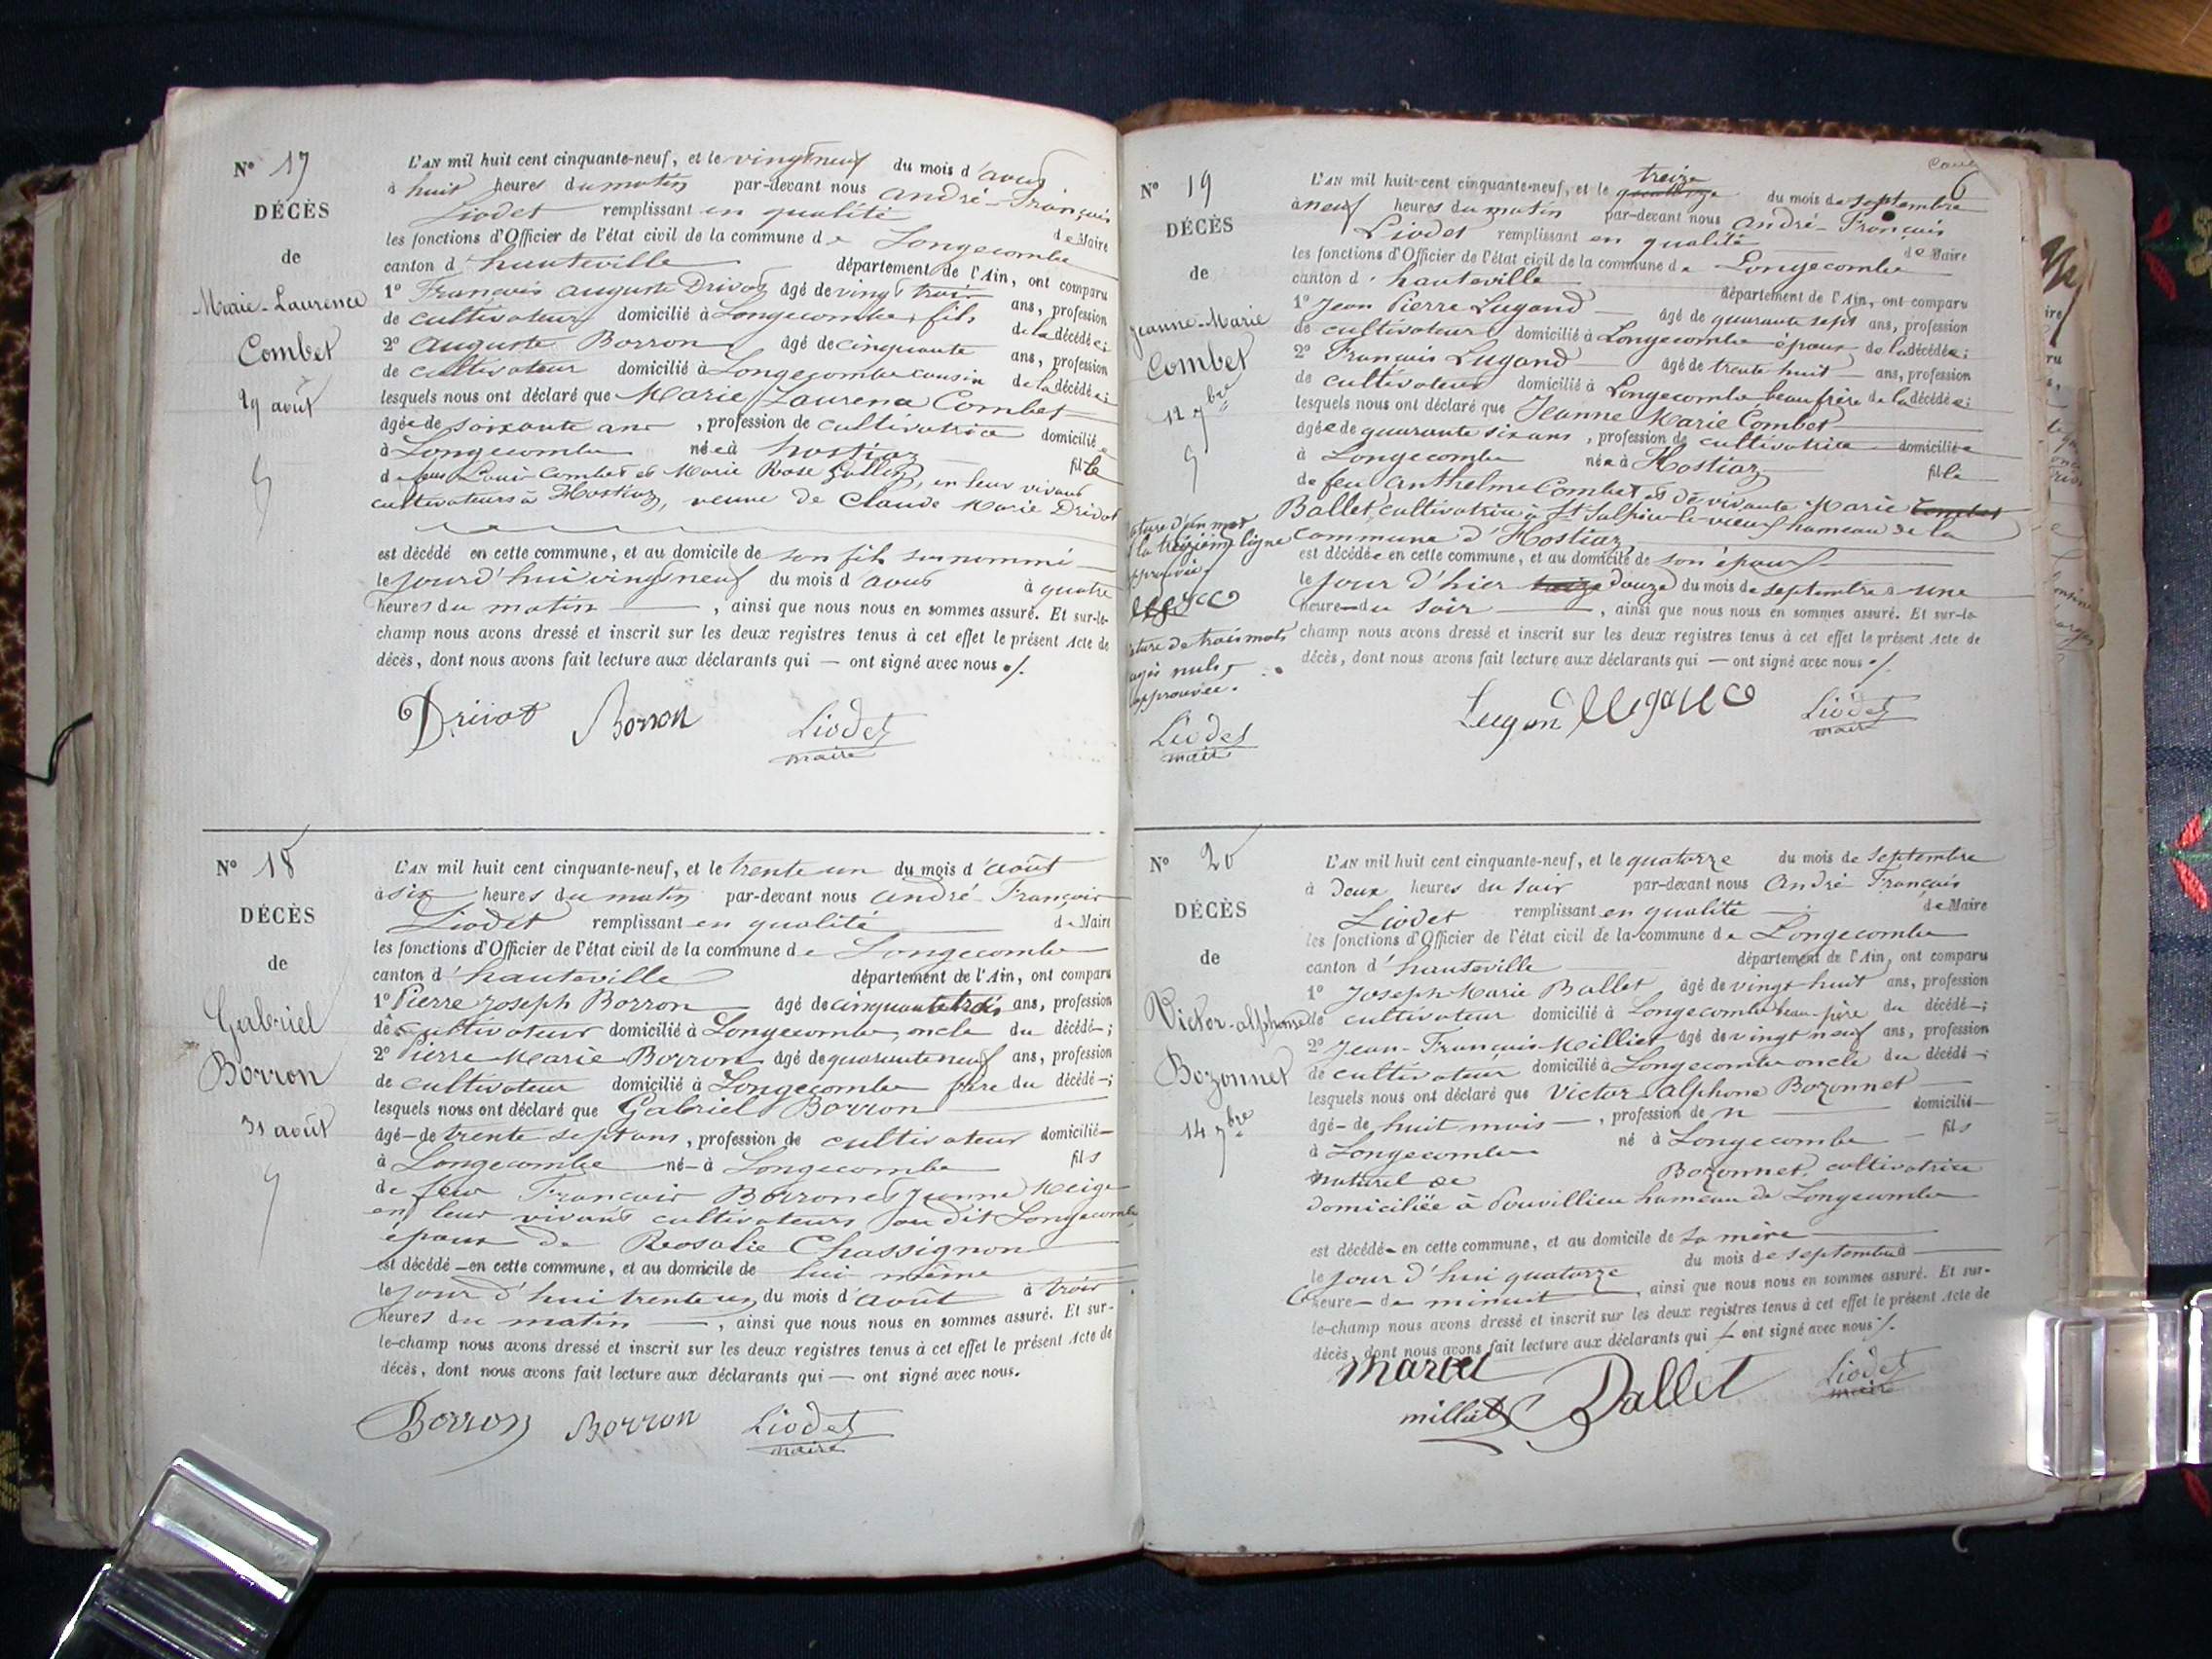 N° 17
DÉCÈS
de
Marie-Laurence
Combet
29 août
L'AN mil huit cent cinquante-neuf, et le vingt neuf du mois d'aout
à huit heures du matin par-devant nous André-François
Liodet remplissant en qualité de Maire
les fonctions d'Officier de l'état civil de la commune de Longecombe
canton d'hauteville département de l'Ain, ont comparu
1° François Auguste Drivot âgé de vingt trois ans, profession
de cultivateur domicilié à Longecombe, fils de la décédée;
2° Auguste Borron âgé de cinquante ans, profession
de cultivateur domicilié à Longecombe cousin de la décédée;
lesquels nous ont déclaré que Marie Laurence Combet
âgée de soixante ans, profession de cultivatrice domiciliée
à Longecombe née à hostiaz fille
de feu Louis Combet et Marie Rose, en leur vivant
cultivateurs à Hostiaz, veuve de Claude Marie Drivot
est décédé en cette commune, et au domicile de son fils susnommé
le jourd'hui vingt neuf du mois d'aout à quatre
heures du matin, ainsi que nous nous en sommes assuré. Et sur-le-
champ nous avons dressé et inscrit sur les deux registres tenus à cet effet le présent Acte de
décès, dont nous avons fait lecture aux déclarants qui — ont signé avec nous ./.
Drivot Borron Liodet
maire
N° 18
DÉCÈS
de
Gabriel
Borron
31 août
L'AN mil huit cent cinquante-neuf, et le trente un du mois d'août
à six heures du matin par-devant nous André-François
Liodet remplissant en qualité de Maire
les fonctions d'Officier de l'état civil de la commune de Longecombe
canton d'hauteville département de l'Ain, ont comparu
1° Pierre Joseph Borron âgé de cinquante trois ans, profession
de cultivateur domicilié à Longecombe, oncle du décédé—;
2° Pierre Marie Borron âgé de quarante neuf ans, profession
de cultivateur domicilié à Longecombe frère du décédé—;
lesquels nous ont déclaré que Gabriel Borron
âgé—de trente sept ans, profession de cultivateur domicilié—
à Longecombe né—à Longecombe fils
de feu François Borron et Jeanne
en leur vivant cultivateurs au dit Longecombe
époux de Rosalie Chassignon
est décédé—en cette commune, et au domicile de lui même
le jour d'hui trente un du mois d'août à trois
heures du matin —, ainsi que nous nous en sommes assuré. Et sur-
le-champ nous avons dressé et inscrit sur les deux registres tenus à cet effet le présent Acte de
décès, dont nous avons fait lecture aux déclarants qui — ont signé avec nous.
Borron Borron Liodet
maire
6
N° 19
DÉCÈS
de
Jeanne-Marie
Combet
12 7bre
L'AN mil huit-cent cinquante-neuf, et le treize quatorze du mois de septembre
à neuf heures du matin par-devant nous André-François
Liodet remplissant en qualité de Maire
les fonctions d'Officier de l'état civil de la commune de Longecombe
canton d'hauteville département de l'Ain, ont comparu
1° Jean Pierre Lugand — âgé de quarante sept ans, profession
de cultivateur domicilié à Longecombe époux de la décédée;
2° François Lugand — âgé de trente huit — ans, profession
de cultivateur domicilié à Longecombe beau frère de la décédée;
lesquels nous ont déclaré que Jeanne Marie Combet
âgée de quarante six ans, profession de cultivatrice domiciliée
à Longecombe née à Hostiaz fille
de feu Anthelme Combet et de vivante Marie Combet
Ballet, cultivatrice à St Sulpice le vieux hameau de la
commune d'Hostiaz
est décédée en cette commune, et au domicile de son époux
le jour d'hier treize douze du mois de septembre à une
heure—du soir —, ainsi que nous nous en sommes assuré. Et sur-le-
champ nous avons dressé et inscrit sur les deux registres tenus à cet effet le présent Acte de
décès, dont nous avons fait lecture aux déclarants qui — ont signé avec nous ./.
ature d'un mot
à la treizième ligne
approuvée.
ature de trois mots
nuls
approuvée.
Liodet
maire
Lugand Lugand Liodet
maire
N° 20
DÉCÈS
de
Victor-alphonse
Bozonnet
14 7bre
L'AN mil huit cent cinquante-neuf, et le quatorze du mois de septembre
à deux heures du soir par-devant nous André François
Liodet remplissant en qualité — de Maire
les fonctions d'Officier de l'état civil de la commune de Longecombe
canton d'hauteville département de l'Ain, ont comparu
1° Joseph-Marie Ballet âgé de vingt-huit ans, profession
de cultivateur domicilié à Longecombe beau-père du décédé—;
2° Jean-François Milliet âgé de vingt neuf ans, profession
de cultivateur domicilié à Longecombe oncle du décédé—;
lesquels nous ont déclaré que Victor alphonse Bozonnet
âgé— de huit mois —, profession de n domicilié—
à Longecombe né à Longecombe — fils
naturel de Bozonnet, cultivatrice
domiciliée à Pouvillieu hameau de Longecombe
est décédé— en cette commune, et au domicile de sa mère
le jour d'hui quatorze du mois de septembre à
heure— de minuit —, ainsi que nous nous en sommes assuré. Et sur-
le-champ nous avons dressé et inscrit sur les deux registres tenus à cet effet le présent Acte de
décès, dont nous avons fait lecture aux déclarants qui — ont signé avec nous ./.
Ballet Liodet
milliet maire